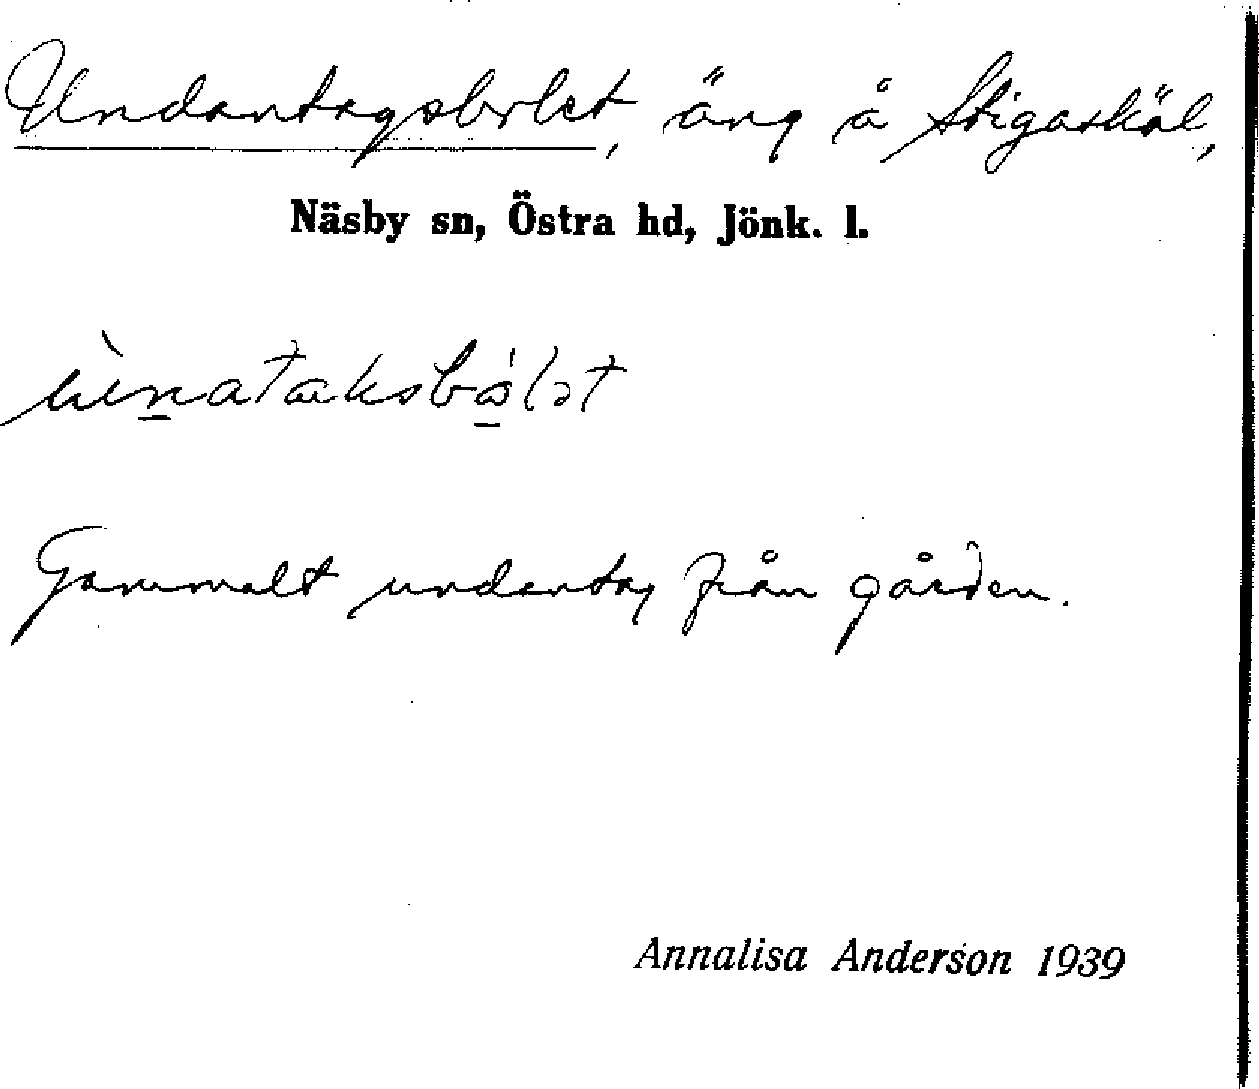 Undantagsbolet, äng å Stigaskäl,
Näsby sn, Östra hd, Jönk. l.
Gammalt undantag från gården.
Annalisa Anderson 1939